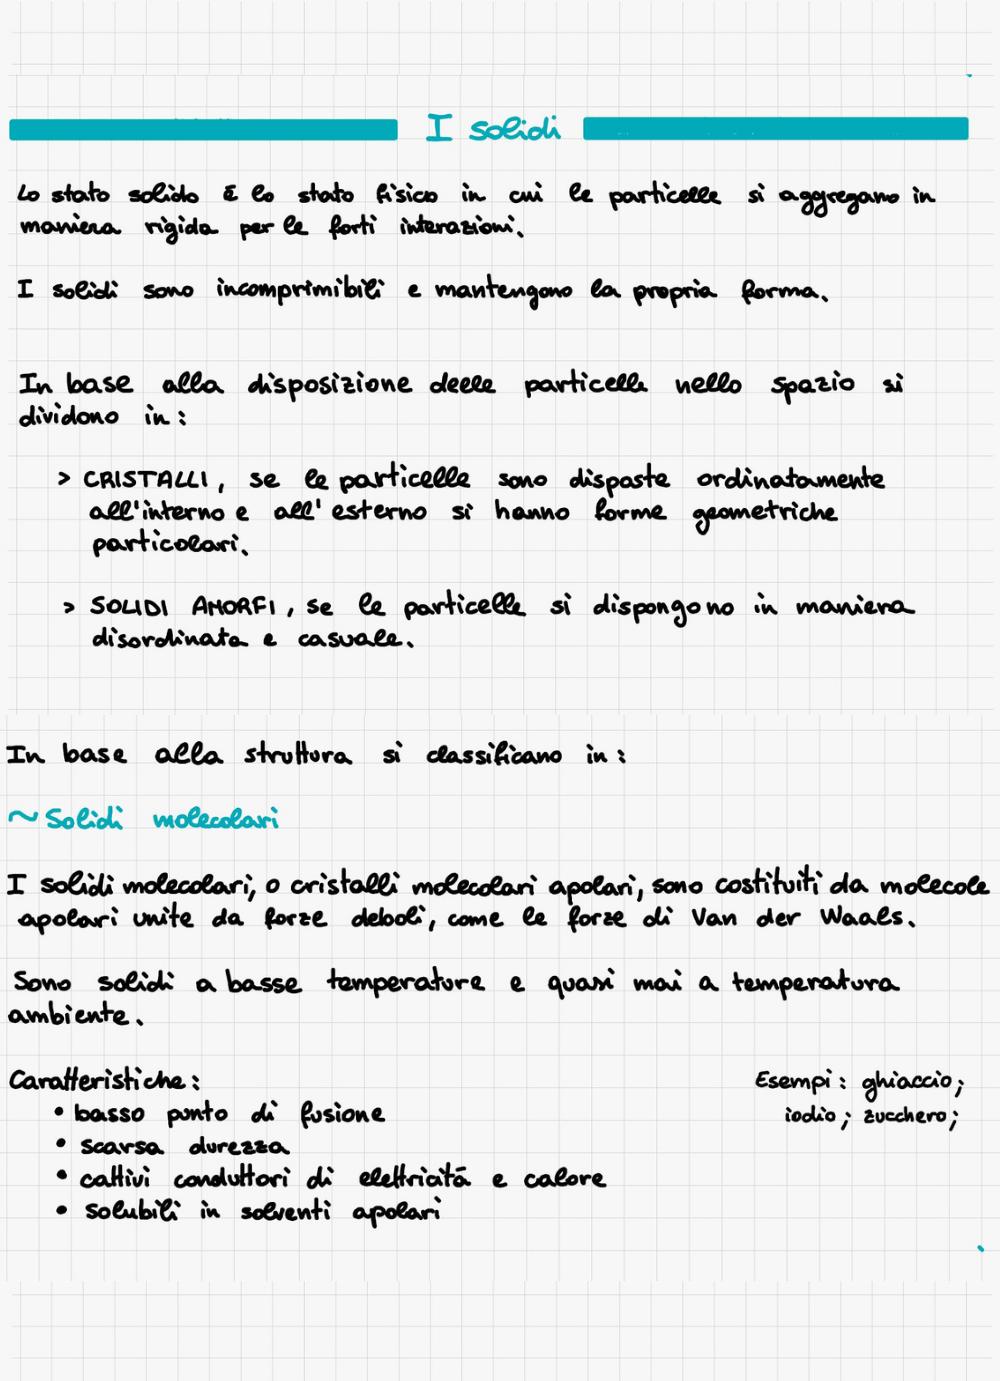 I solidi
Lo stato solido È lo stato fisico in cui le particelle si aggregano in
maniera rigida per le forti interazioni.
I solidi sono incomprimibili e mantengono la propria forma.
In base alla disposizione delle particelle nello spazio si
dividono in:
> CRISTALLI, se le particelle sono disposte ordinatamente
all'interno e all'esterno si hanno forme geometriche
particolari.
> SOLIDI AMORFI, se le particelle si dispongono in maniera
disordinata e casuale.
In base alla struttura si classificano in:
~ Solidi molecolari
I solidi molecolari, o cristalli molecolari apolari, sono costituiti da molecole
apolari unite da forze deboli, come le forze di Van der Waals.
Sono solidi a basse temperature e quasi mai a temperatura
ambiente.
Caratteristiche:
Esempi: ghiaccio;
• basso punto di fusione
iodio; zucchero;
• scarsa durezza
• cattivi conduttori di elettricità e calore
• solubili in solventi apolari